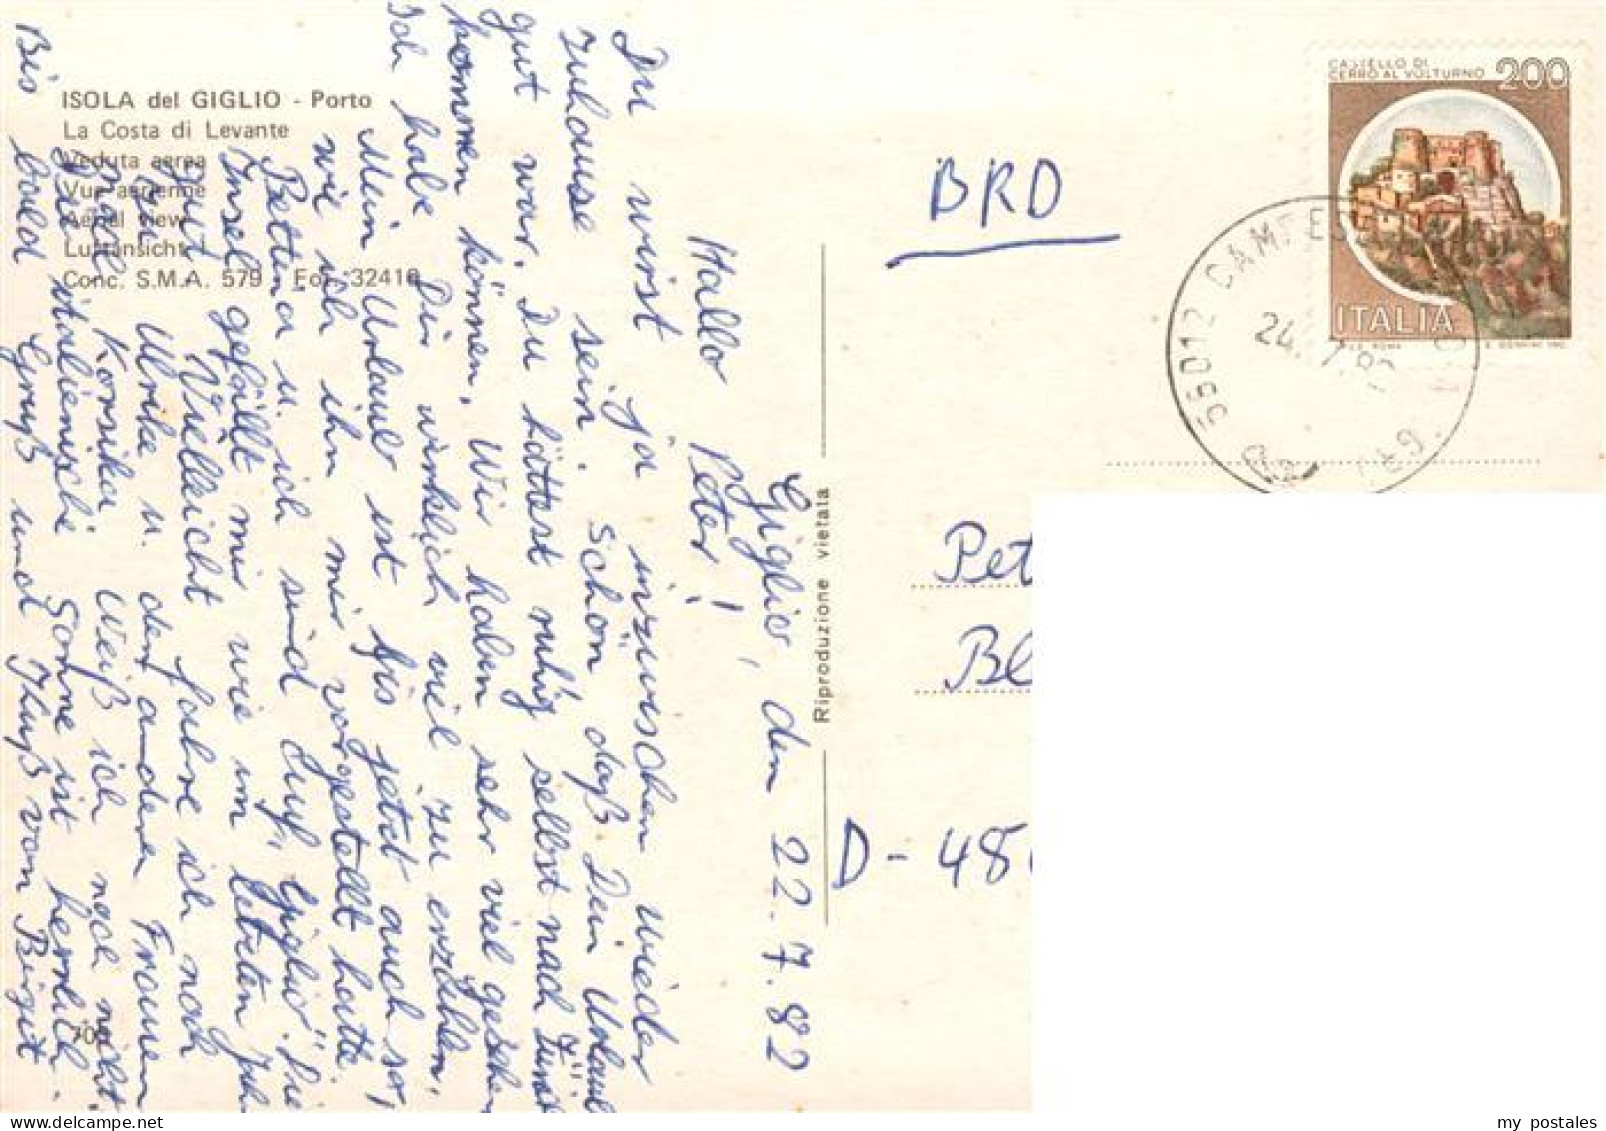 ISOLA del GIGLIO - Porto
La Costa di Levante
Veduta aerea
Vue aérienne
Aerial view
Luftansicht
Conc. S.M.A. 579 Fot. 32410
Giglio, den 22.7.82
Hallo Peter!
Du wirst ja inzwischen wieder
zuhause sein. Schön daß Dein Urlaub
gut war. Du hättest ruhig selbst nach
kommen können. Wir haben sehr viel gesehen
Ich habe Dir wirklich viel zu erzählen.
Mein Urlaub ist bis jetzt auch so,
wie ich ihn mir vorgestellt hatte.
Bettina u. ich sind auf "Giglio". Die
Insel gefällt mir wie im letzten Jahr
gut. Vielleicht fahre ich noch
Ulrike u. den anderen Frauen
nach Korsika. Weiß ich noch nicht.
Die italienische Sonne ist herrlich.
Bis bald Gruß und Kuß von Birgit
Riproduzione vietata
CASTELLO DI
CERRO AL VOLTURNO 200
ITALIA
58012 CAMPESE
24.7.82
BRD
Pet
Bl
D-48
my postales